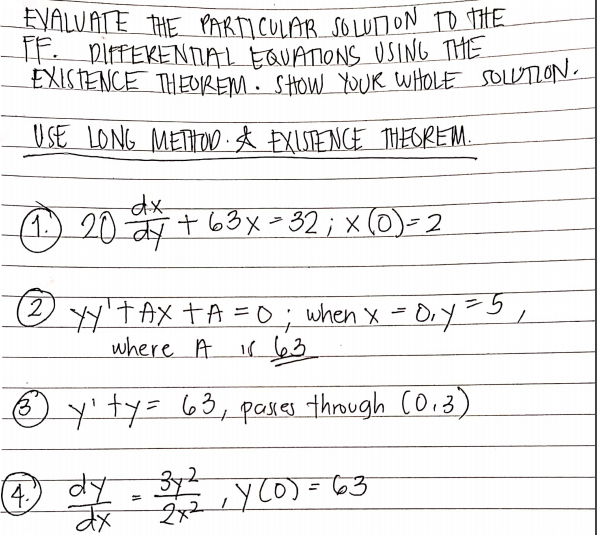 EVALUATE THE PARTICULAR SOLUTION TO THE
FF. DIFFERENTIAL EQUATIONS USING THE
EXISTENCE THEOREM. SHOW YOUR WHOLE SOLUTION.
USE LONG METHOD & EXISTENCE THEOREM.
1. 20 dx/dy + 63x = 32 ; x(0) = 2
2 yy' + Ax + A = 0 ; when x = 0, y = 5,
where A is 63
3 y' + y = 63, passes through (0,3)
4. dy/dx = 3y²/2x² , y(0) = 63